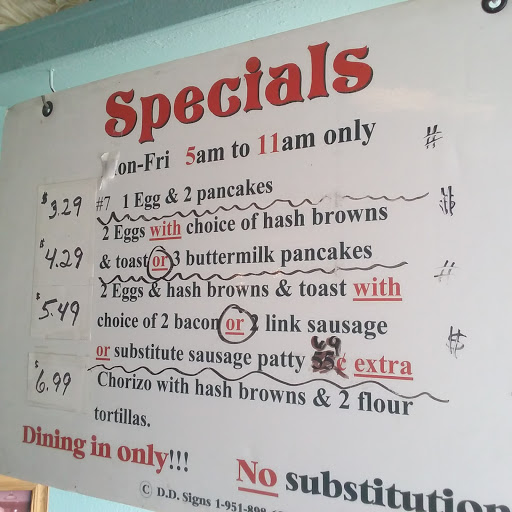 Specials
on-Fri 5am to 11am only
#
$3.29 #7 1 Egg & 2 pancakes
2 Eggs with choice of hash browns
$4.29 & toast or 3 buttermilk pancakes
#
2 Eggs & hash browns & toast with
$5.49 choice of 2 bacon or 2 link sausage
69
or substitute sausage patty ¢ extra
$6.99 Chorizo with hash browns & 2 flour
tortillas.
Dining in only!!!
No substitution
© D.D. Signs 1-951-898